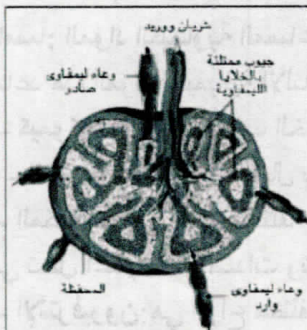 شريان ووريد
وعاء ليمفاوى
صادر
جيوب ممتلئة
بالخلايا
الليمفاوية
المحفظة
وعاء ليمفاوى
وارد